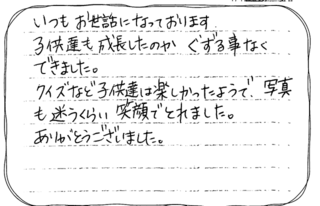 いつもお世話になっております
子供達も成長したのか ぐずる事なく
できました。
クイズなど子供達は楽しかったようで、写真
も迷うくらい笑顔でとれました。
ありがとうございました。